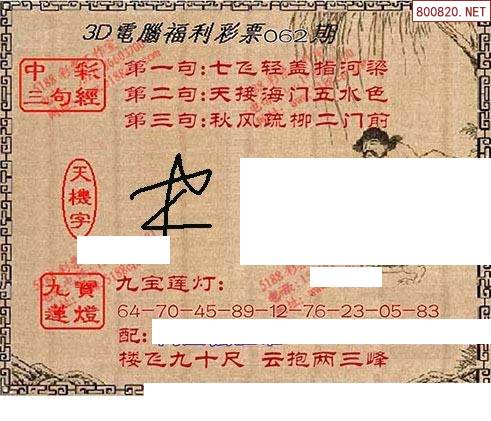 800820.NET
3D電腦福利彩票062期
中彩三句經
第一句:七飞轻盖指河梁
第二句:天接海门五水色
第三句:秋风疏柳二门前
天機字
九寶蓮燈
九宝莲灯:
64-70-45-89-12-76-23-05-83
配:
楼飞九十尺 云抱两三峰